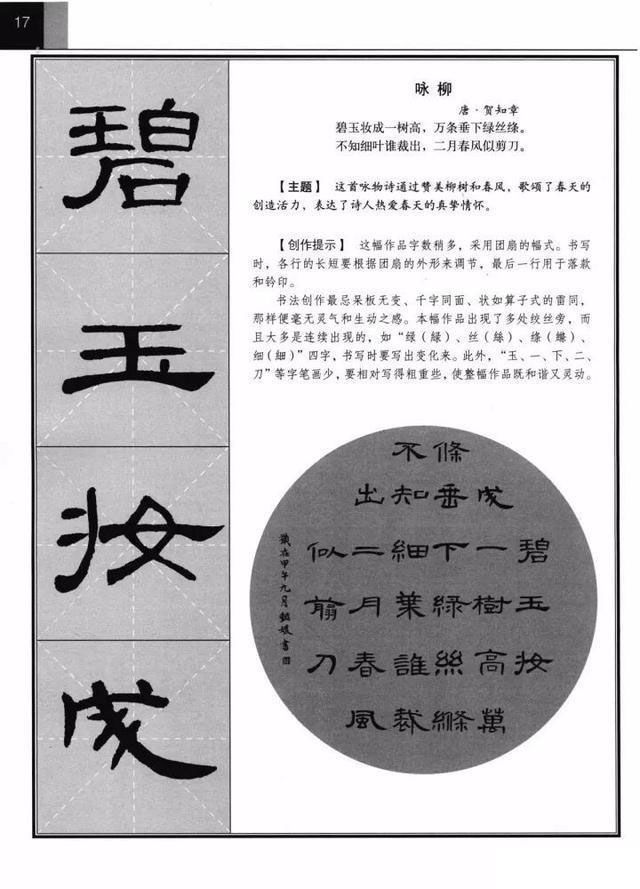 17
碧
玉
妝
成
咏 柳
唐·贺知章
碧玉妆成一树高，万条垂下绿丝绦。
不知细叶谁裁出，二月春风似剪刀。
【主题】 这首咏物诗通过赞美柳树和春风，歌颂了春天的
创造活力，表达了诗人热爱春天的真挚情怀。
【创作提示】 这幅作品字数稍多，采用团扇的幅式。书写
时，各行的长短要根据团扇的外形来调节，最后一行用于落款
和钤印。
书法创作最忌呆板无变、千字同面、状如算子式的雷同，
那样便毫无灵气和生动之感。本幅作品出现了多处绞丝旁，而
且大多是连续出现的，如“绿（綠）、丝（絲）、绦（縧）、
细（細）”四字，书写时要写出变化来。此外，“玉、一、下、二、
刀”等字笔画少，要相对写得粗重些，使整幅作品既和谐又灵动。
碧玉妝
成一樹高萬
條垂下綠絲縧
不知細葉誰裁
出二月春風
似翦刀
歲在甲午九月
書